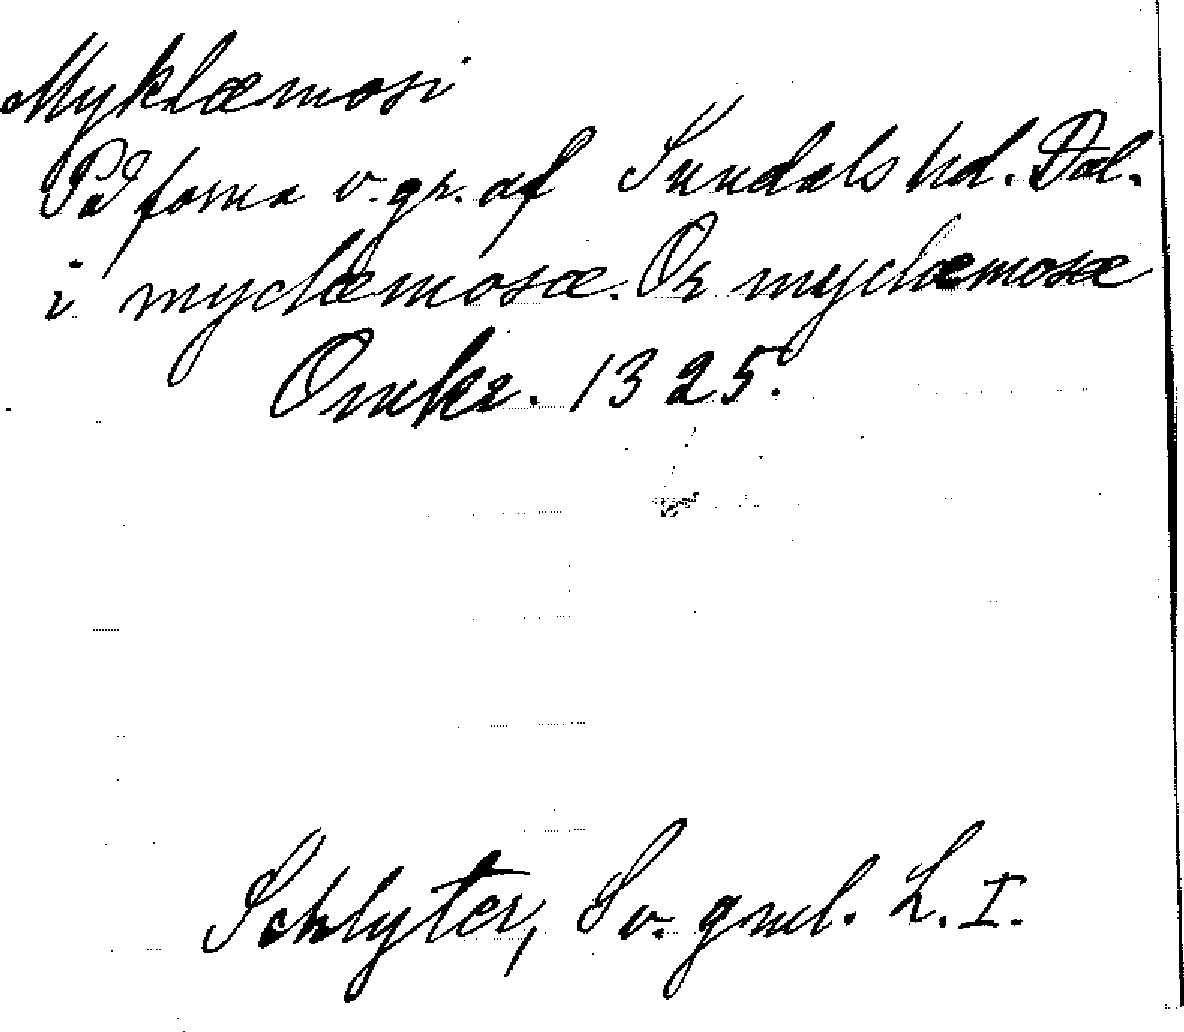 Myklæmosi
På forna v. gr. af Sundals hd. Dal.
i myclæmosæ. Or myclæmosæ
Omkr. 1325.
Schlyter, Sv. gml. L. I.